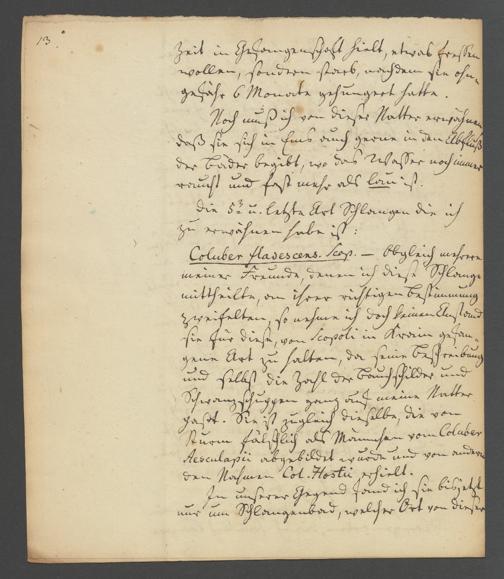 13.
Zeit in Gefangenschaft hielt, etwas fressen
wollen, sondern starb, nachdem sie ohn-
gefähr 6 Monate gehungert hatte.
Noch muß ich von dieser Natter erwähnen
daß sie sich in Ems auch gerne in den Abfluß
der Bäder begibt, wo das Wasser noch immer
raucht und fast mehr als lau ist.
Die 5te u. letzte Art Schlangen die ich
zu erwähnen habe ist:
Coluber flavescens. Scop. — Obgleich mehrere
meiner Freunde, denen ich diese Schlange
mittheilte, an ihrer richtigen Bestimmung
zweifelten, so nehme ich doch keinen Anstand
sie für diese, von Scopoli in Krain gefan-
gene Art zu halten, da seine Beschreibung
und selbst die Zahl der Bauchschilder und
Schwanzschuppen ganz auf meine Natter
paßt. Sie ist zugleich dieselbe, die von
Sturm fälschlich als Männchen vom Coluber
Aesculapii abgebildet wurde und von andern
den Nahmen Col. Hostii erhielt.
In unserer Gegend fand ich sie bis jetzt
nur um Schlangenbad, welcher Ort von dieser